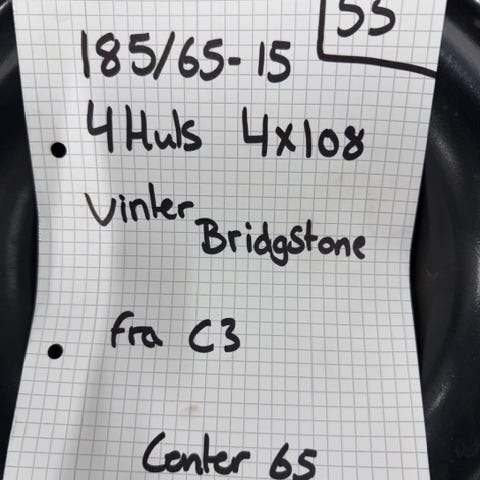 55
185/65-15
4 Huls 4x108
Vinter
Bridgstone
fra C3
Center 65